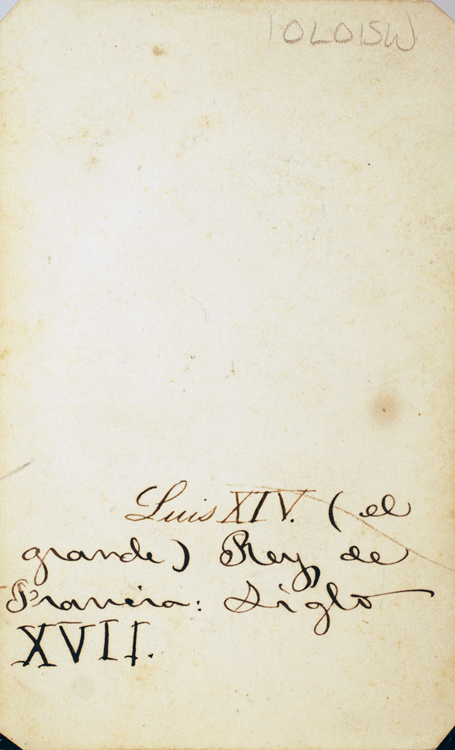 10L015W
Luis XIV. (el
grande) Rey de
Francia: Siglo
XVII.